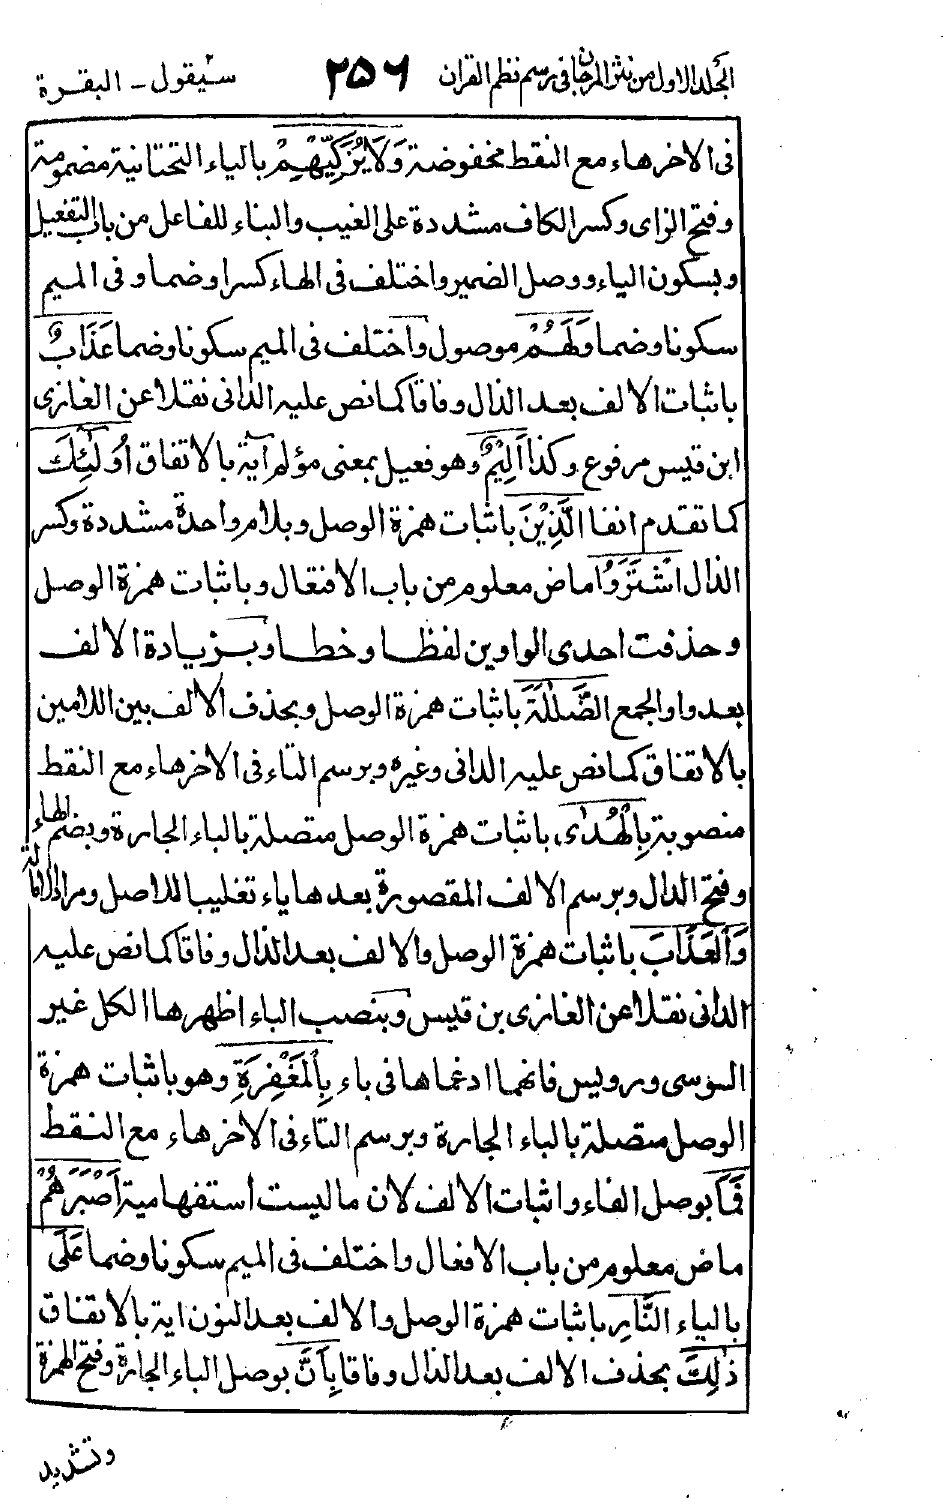 الجلد الاول من نثر المرجان فى رسم نظم القران ٢٥٦ سيقول - البقرة
فى الاخر هاء مع النقط مخفوضة وَلَا يُزَكِّيْهِمْ بالياء التحتانية مضمومة
وفتح الزاى وكسر الكاف مشددة على الغيب والبناء للفاعل من باب التفعيل
وبسكون الياء ووصل الضمير واختلف فى الهاء كسرا وضما وفى الميم
سكونا وضما وَلَهُمْ موصول واختلف فى الميم سكونا وضما عَذَابٌ
باثبات الالف بعد الذال وفاقا كما نص عليه الدانى نقلا عن الغازى
ابن قيس مرفوع وكذا اَلِيْمٌ وهو فعيل بمعنى مؤلم آية بالاتفاق اُولٰٓئِكَ
كما تقدم انفا الَّذِيْنَ باثبات همزة الوصل وبلام واحدة مشددة وكسر
الذال اشْتَرَوُا ماض معلوم من باب الافتعال وباثبات همزة الوصل
وحذفت احدى الواوين لفظا وخطا وبزيادة الالف
بعد واو الجمع الضَّلٰلَةَ باثبات همزة الوصل وبحذف الالف بين اللامين
بالاتفاق كما نص عليه الدانى وغيره وبرسم التاء فى الاخر هاء مع النقط
منصوبة بِالْهُدٰى باثبات همزة الوصل متصلة بالباء الجارة وبضم الهاء
وفتح الدال وبرسم الالف المقصورة بعدها ياء تغليبا للاصل ومراد الامالة
وَالْعَذَابَ باثبات همزة الوصل والالف بعد الذال وفاقا كما نص عليه
الدانى نقلا عن الغازى بن قيس وبنصب الباء اظهرها الكل غير
السوسى ورويس فانهما ادغماها فى باء بِالْمَغْفِرَةِ وهو باثبات همزة
الوصل متصلة بالباء الجارة وبرسم التاء فى الاخر هاء مع النقط
فَمَآ بوصل الفاء واثبات الالف لان ما ليست استفهامية اَصْبَرَهُمْ
ماض معلوم من باب الافعال واختلف فى الميم سكونا وضما عَلَى
بالياء النَّارِ باثبات همزة الوصل والالف بعد النون اية بالاتفاق
ذٰلِكَ بحذف الالف بعد الذال وفاقا بِاَنَّ بوصل الباء الجارة وفتح الهمزة
وتشديد